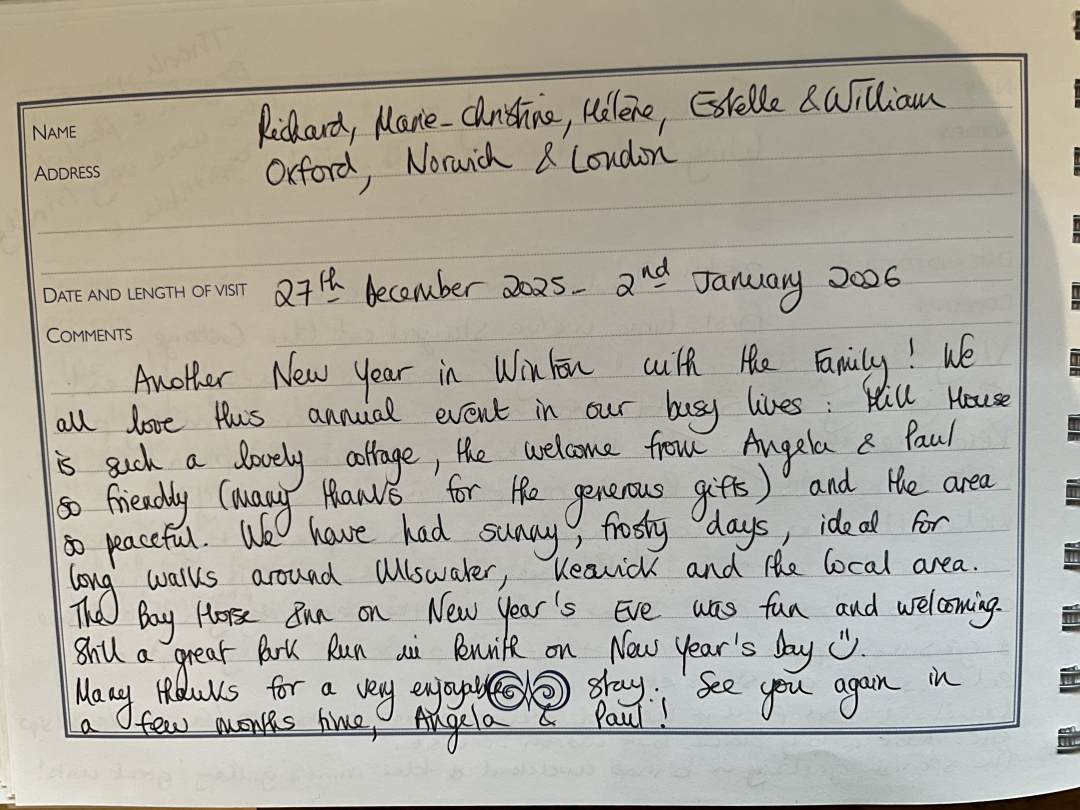 NAME Richard, Marie-Christine, Hélène, Estelle & William
ADDRESS Oxford, Norwich & London
DATE AND LENGTH OF VISIT 27th December 2025 - 2nd January 2026
COMMENTS
Another New Year in Winton with the Family! We
all love this annual event in our busy lives : Hill House
is such a lovely cottage, the welcome from Angela & Paul
so friendly (many thanks for the generous gifts) and the area
so peaceful. We have had sunny, frosty days, ideal for
long walks around Ullswater, Keswick and the local area.
The Bay Horse Inn on New Year's Eve was fun and welcoming.
Still a great Park Run in Penrith on New Year's Day
Many thanks for a very enjoyable stay. See you again in
a few months time, Angela & Paul!